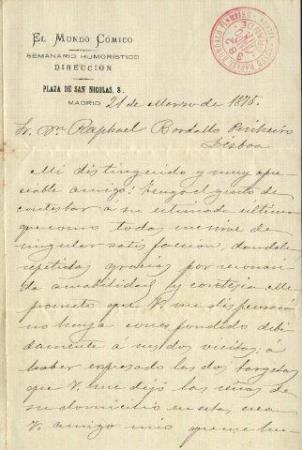 EL MUNDO CÓMICO
SEMANARIO HUMORÍSTICO
DIRECCION
PLAZA DE SAN NICOLAS, 8.
MADRID 21 de Marzo de 1875.
Sr. Dn. Raphael Bordallo Pinheiro
Lisboa
Mi distinguido y muy apre-
ciable amigo: Tengo el gusto de
contestar á su estimada última
que como todas me sirve de
singular satisfaccion, dándole
repetidas gracias por
amabilidad y cortesia. Me
prometo que V. me dispensará
no haya correspondido debi-
damente á sus dos visitas: á
haber expresado las dos targetas
que V. me dejó las señas de
su domicilio
V. amigo mio que me hu-